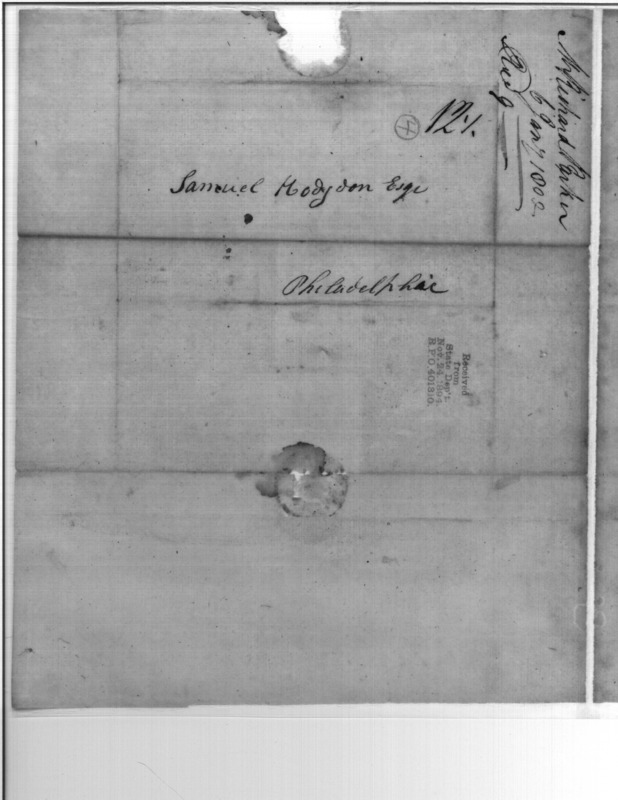 Mr Richard Parker
6 Jany 1802
Recd 9
12½.
4
Samuel Hodgdon Esqr
Philadelphia
Received
from
State Dep't.
Nov. 24, 1894
R.P.O. 401310.